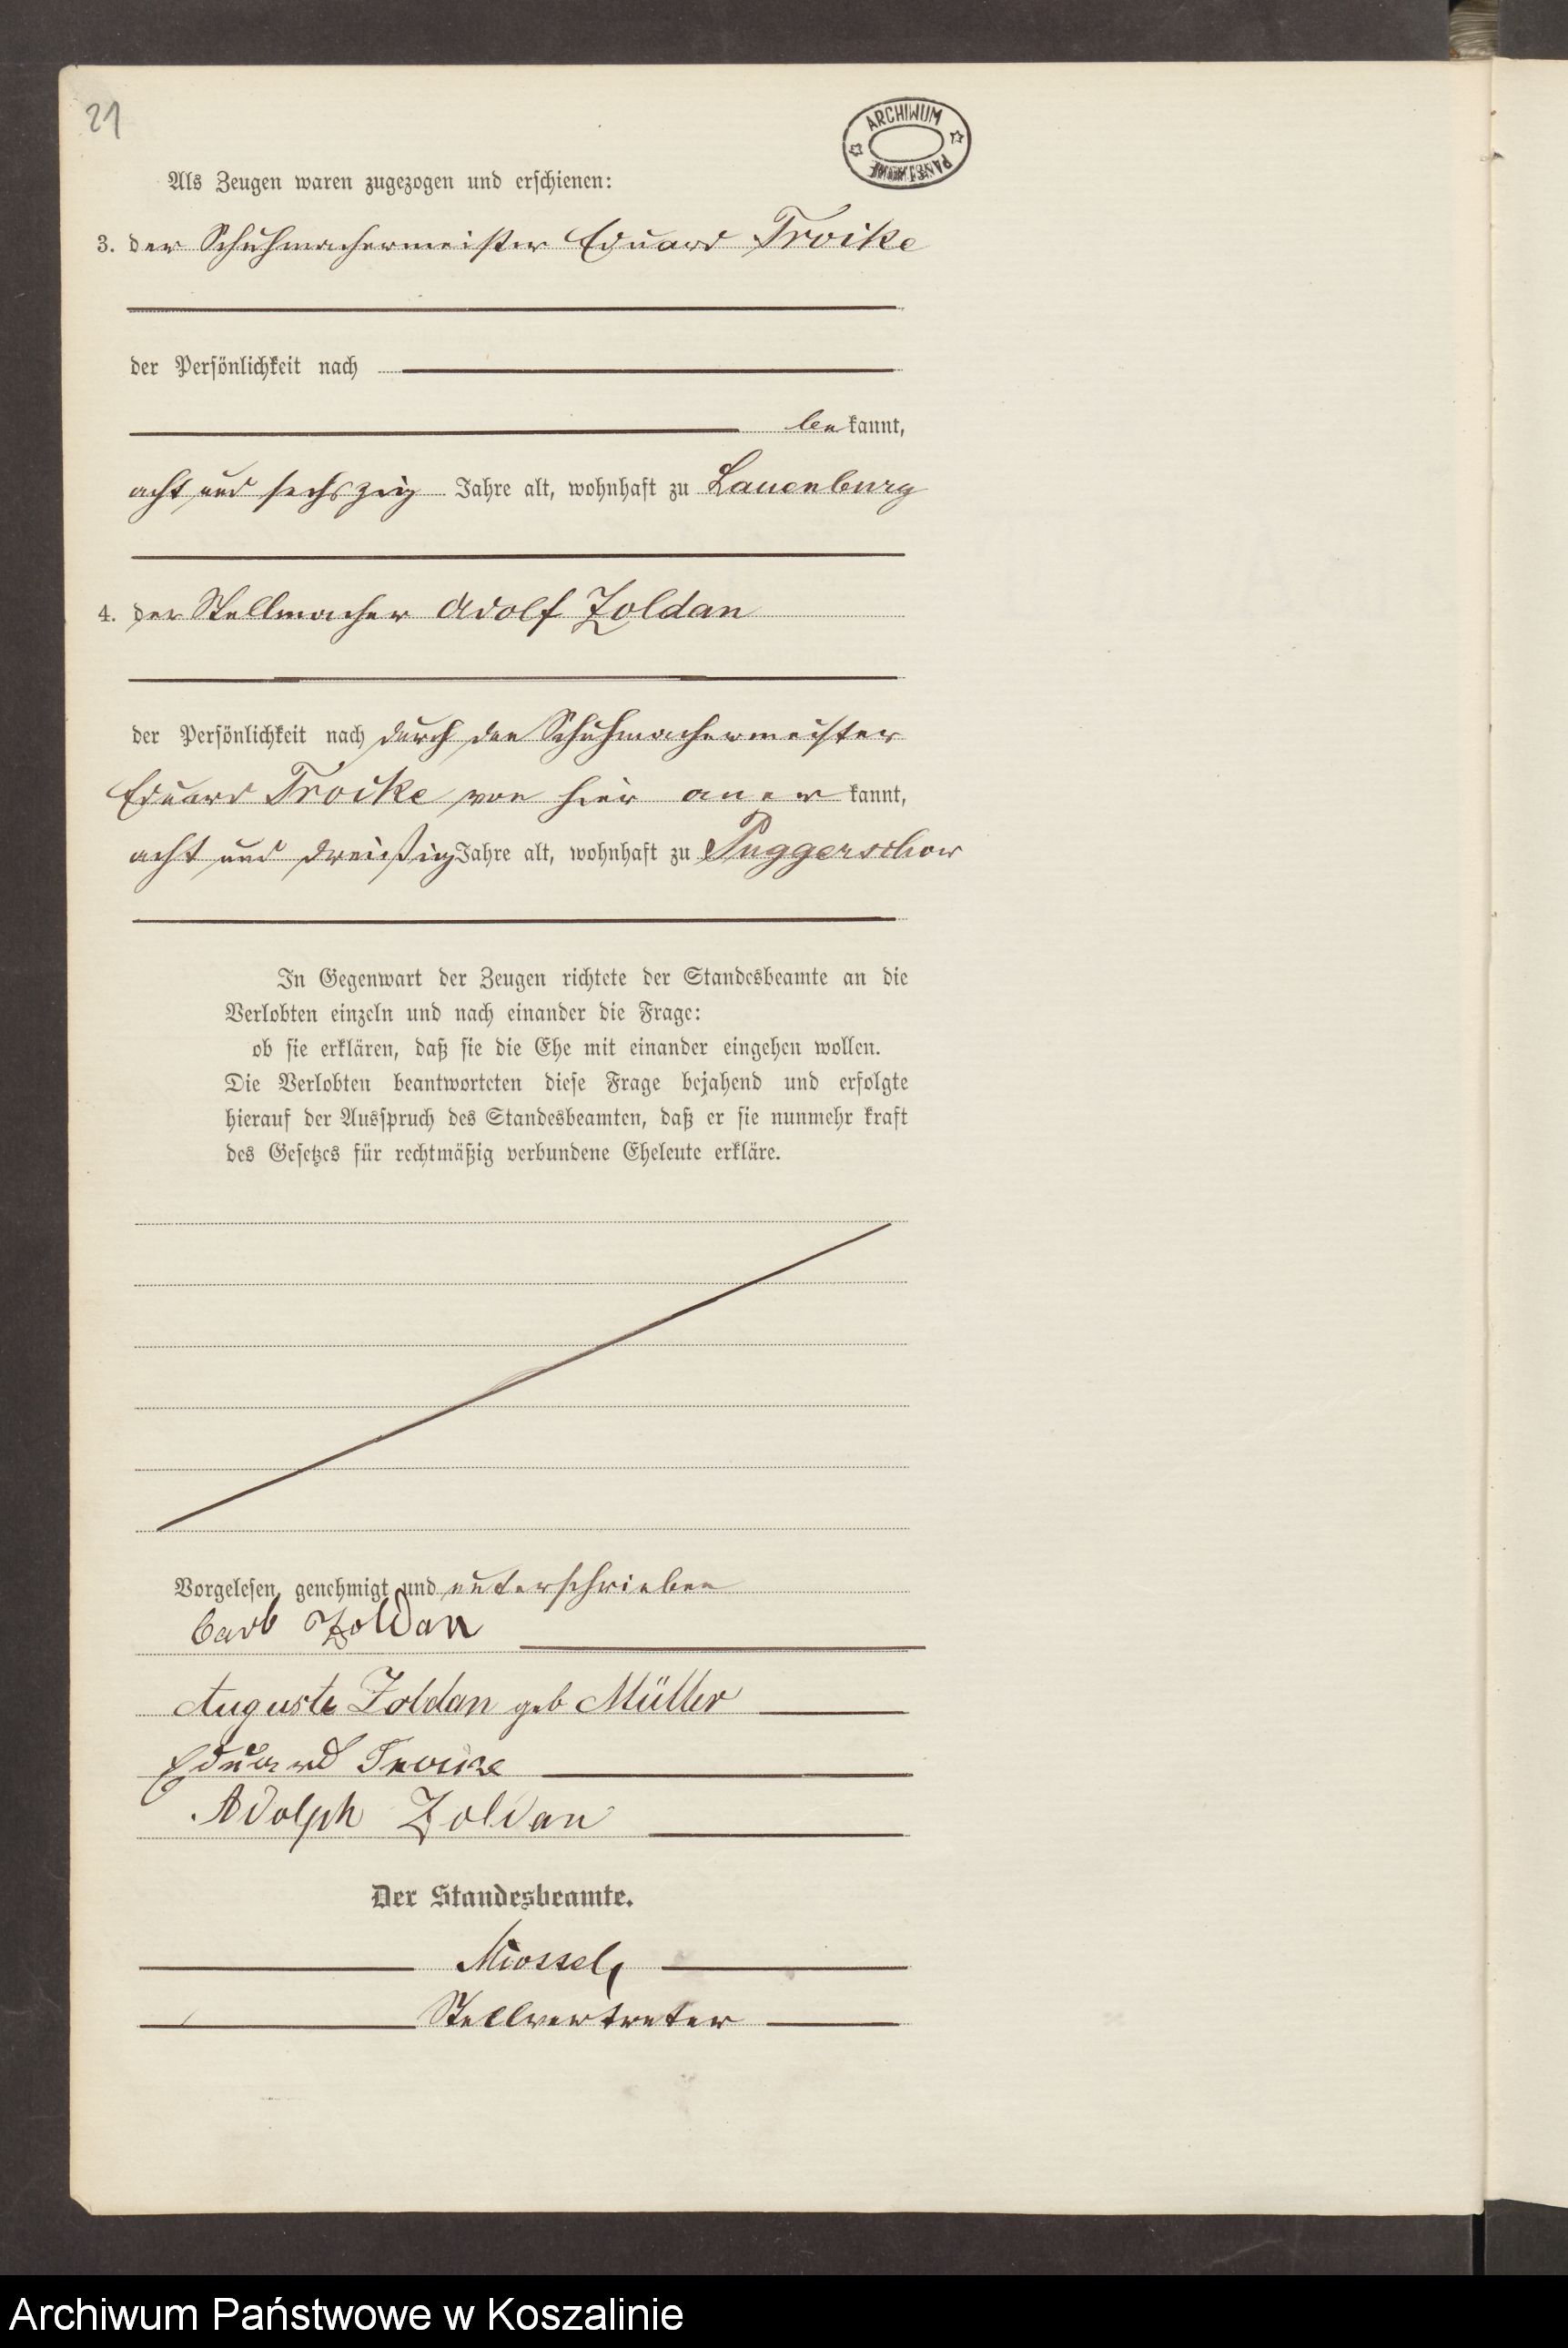 21
ARCHIWUM
Als Zeugen waren zugezogen und erschienen:
3. der Schuhmachermeister Eduard Troike
der Persönlichkeit nach
bekannt,
acht und sechszig Jahre alt, wohnhaft zu Lauenburg
4. der Stellmacher Adolf Zoldan
der Persönlichkeit nach durch den Schuhmachermeister
Eduard Troike von hier anerkannt,
acht und dreißig Jahre alt, wohnhaft zu Puggerschow
In Gegenwart der Zeugen richtete der Standesbeamte an die
Verlobten einzeln und nach einander die Frage:
ob sie erklären, daß sie die Ehe mit einander eingehen wollen.
Die Verlobten beantworteten diese Frage bejahend und erfolgte
hierauf der Ausspruch des Standesbeamten, daß er sie nunmehr kraft
des Gesetzes für rechtmäßig verbundene Eheleute erkläre.
Vorgelesen, genehmigt und unterschrieben
Carl Zoldan
Auguste Zoldan geb Müller
Eduard Troike
Adolph Zoldan
Der Standesbeamte.
Miossel,
Stellvertreter
Archiwum Państwowe w Koszalinie